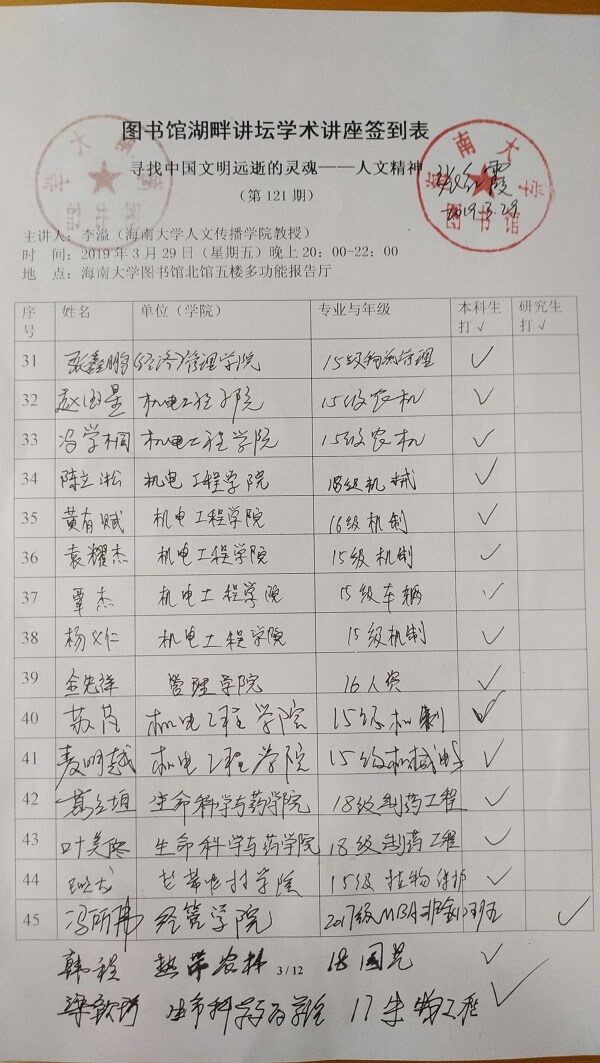 图书馆湖畔讲坛学术讲座签到表
寻找中国文明远逝的灵魂——人文精神
（第 121 期）
海南大学
图书馆
海南大学
图书馆
张红霞
2019.3.29
主讲人：李溢（海南大学人文传播学院教授）
时 间：2019 年 3 月 29 日（星期五）晚上 20：00-22：00
地 点：海南大学图书馆北馆五楼多功能报告厅
序号 姓名 单位（学院） 专业与年级 本科生打√ 研究生打√
31 张鑫鹏 经济管理学院 15级物流管理 ✓
32 机电工程学院 15级农机 ✓
33 冯学桐 机电工程学院 15级农机 ✓
34 陈立淞 机电工程学院 18级机械 ✓
35 黄有赋 机电工程学院 16级机制 ✓
36 袁耀杰 机电工程学院 15级机制 ✓
37 覃杰 机电工程学院 15级车辆 ✓
38 杨文仁 机电工程学院 15级机制 ✓
39 金先祥 管理学院 16人资 ✓
40 机电工程学院 15级机制 ✓
41 麦明越 机电工程学院 15级机械电子 ✓
42 生命科学与药学院 18级制药工程 ✓
43 生命科学与药学院 18级制药工程 ✓
44 学院 15级植物保护 ✓
45 经管学院 2017级MBA 班 ✓
韩程 热带农林 18园艺 ✓
3 / 12
梁 生命科学与药学院 17生物工程 ✓